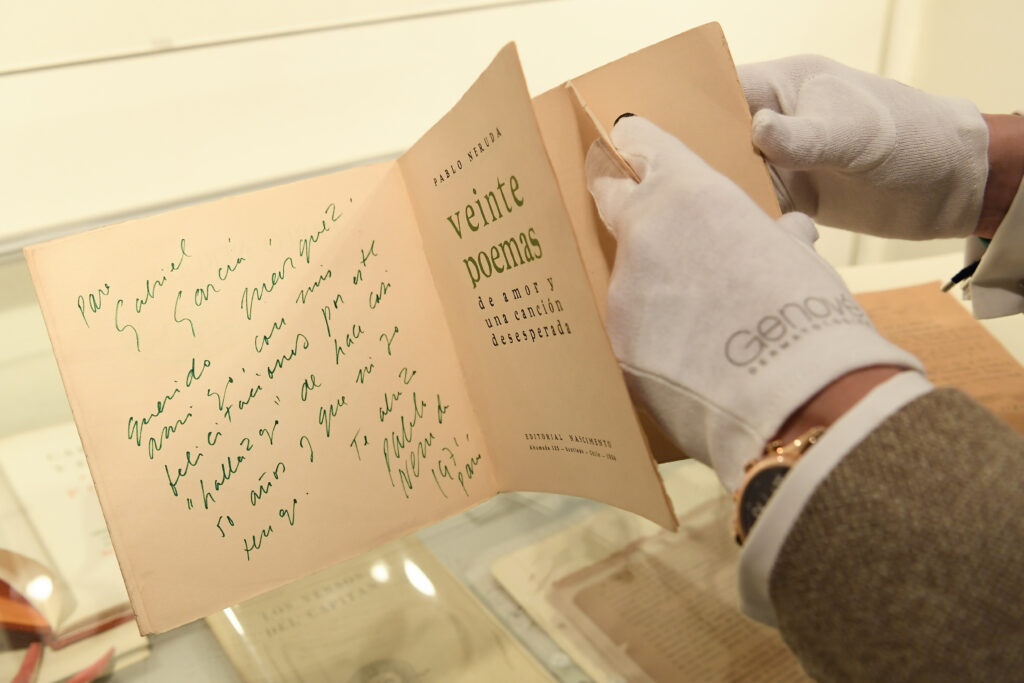 para
Gabriel
García
Márquez,
querido
amigo, con mis
felicitaciones por este
"hallazgo" de hace casi
50 años y que ni yo
tengo.
Te abraza
Pablo
Neruda
1971,
PABLO NERUDA
veinte
poemas
de amor y
una canción
desesperada
EDITORIAL NASCIMENTO
Ahumada 125 — Santiago — Chile — 1924
Genové
DERMATOLOGI
LOS VERSOS
DEL CAPITAN